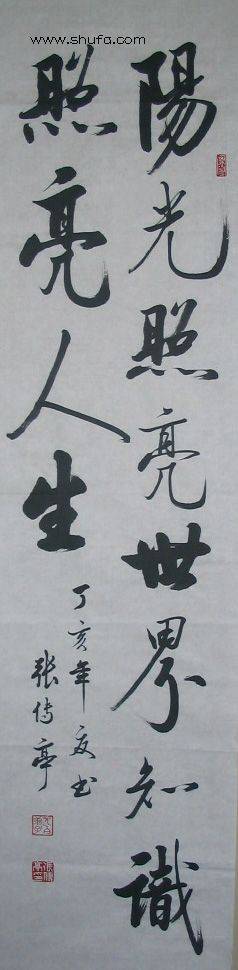 www.shufa.com
陽光照亮世界知識
照亮人生
丁亥年夏书
张传亭